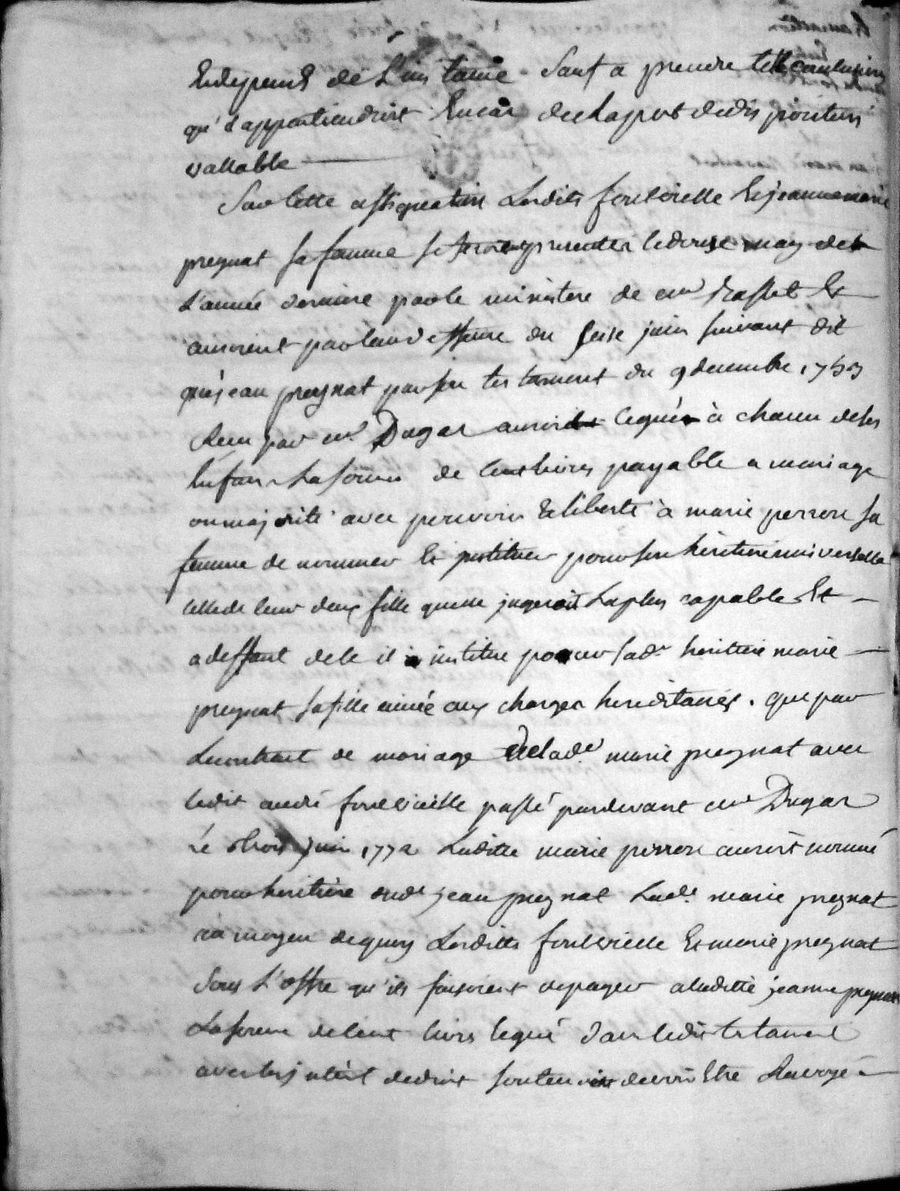 Et depens de L'instance sauf a prendre telle conclusions
qu'il appartiendroit En cas de
vallable
Sur cette assignation Lesdits foulvieille Et jeanne marie
pregnat sa femme se presenter le douze may de
L'année derniere par le ministere de me Et
auroient par du seise juin suivant dit
que jean pregnat par son testament du 9 decembre 1753
Receu par me Dugas auroit legué à chacun de ses
Enfans La somme de Cent livres payable a mariage
ou majorité avec pouvoir Et liberté à marie perron sa
femme de nommer Et instituer pour son heritiere universelle
celle de leur deux fille quelle jugeroit La plus capable Et
a deffaut de ce il institue pour sade heritiere marie
pregnat sa fille ainée aux charges hereditaires. que par
Le contract de mariage de lade marie pregnat avec
ledit andré foulvieille passé pardevant me Dugas
Le trois juin 1772 Laditte marie perron auroit nommé
pour heritiere dud. jean pregnat Lade marie pregnat
au moyen de quoy Lesditts foulvieille Et marie pregnat
sous L'offre qu'ils faisoient de payer a laditte jeanne pregnat
La somme de Cent livres legué dans ledit testament
avec les interêt de droit soutenoient devoir Etre Renvoyé